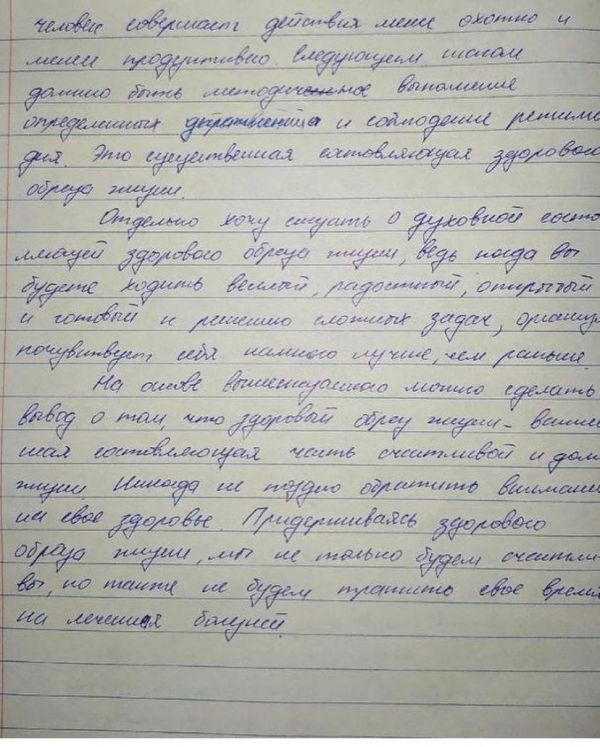 человек совершает действия менее охотно и
менее продуктивно. Следующим шагом
должно быть методичное выполнение
определенных и соблюдение режима
дня. Это существенная составляющая здорового
образа жизни.
Отдельно хочу сказать о духовной соста
ляющей здорового образа жизни, ведь когда вы
будете ходить веселый, радостный, открытый
и готовый к решению сложных задач, организм
почувствует себя намного лучше, чем раньше.
На основе вышесказанного можно сделать
вывод о том, что здоровый образ жизни – важней
шая составляющая часть счастливой и долг
жизни. Никогда не поздно обратить внимание
на свое здоровье. Придерживаясь здорового
образа жизни, мы не только будем счастли
вы, но также не будем тратить свое время
на лечения болезней.